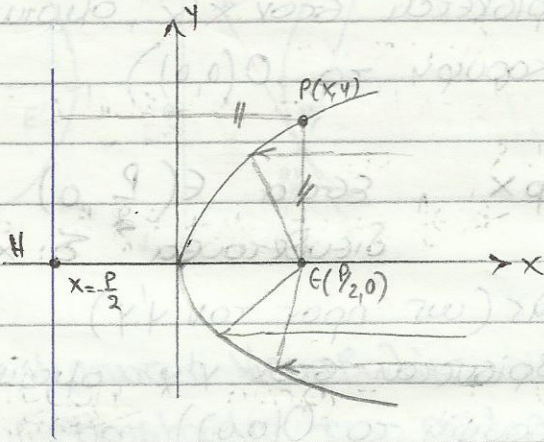 y
P(x,y)
H
x
x=-p/2
E(p/2,0)